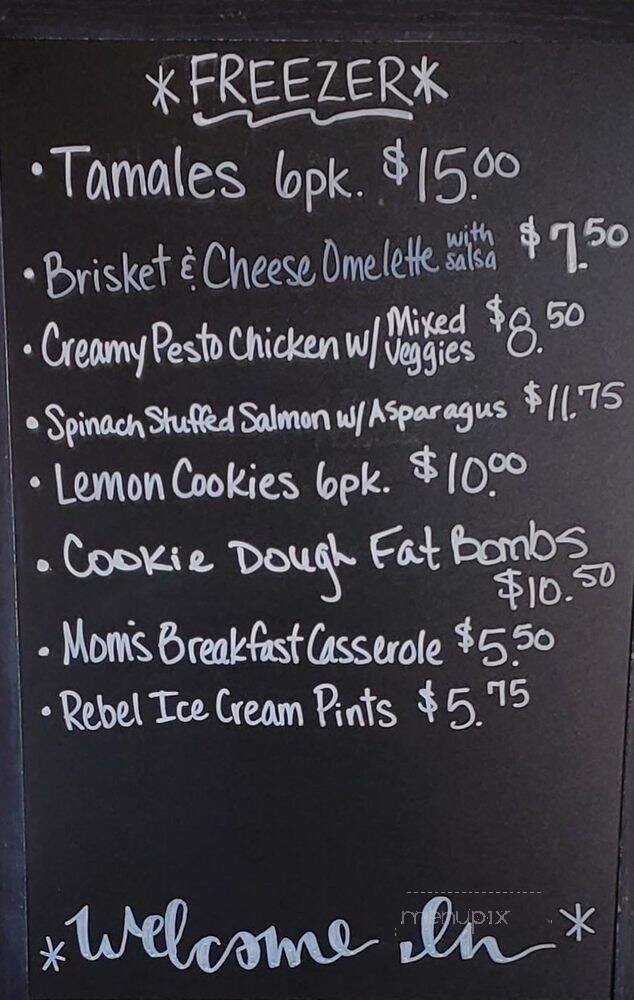 *FREEZER*
• Tamales 6pk. $15.00
• Brisket & Cheese Omelette with salsa $7.50
• Creamy Pesto Chicken w/ Mixed Veggies $8.50
• Spinach Stuffed Salmon w/ Asparagus $11.75
• Lemon Cookies 6pk. $10.00
• Cookie Dough Fat Bombs
$10.50
• Mom's Breakfast Casserole $5.50
• Rebel Ice Cream Pints $5.75
menupix
*Welcome In*